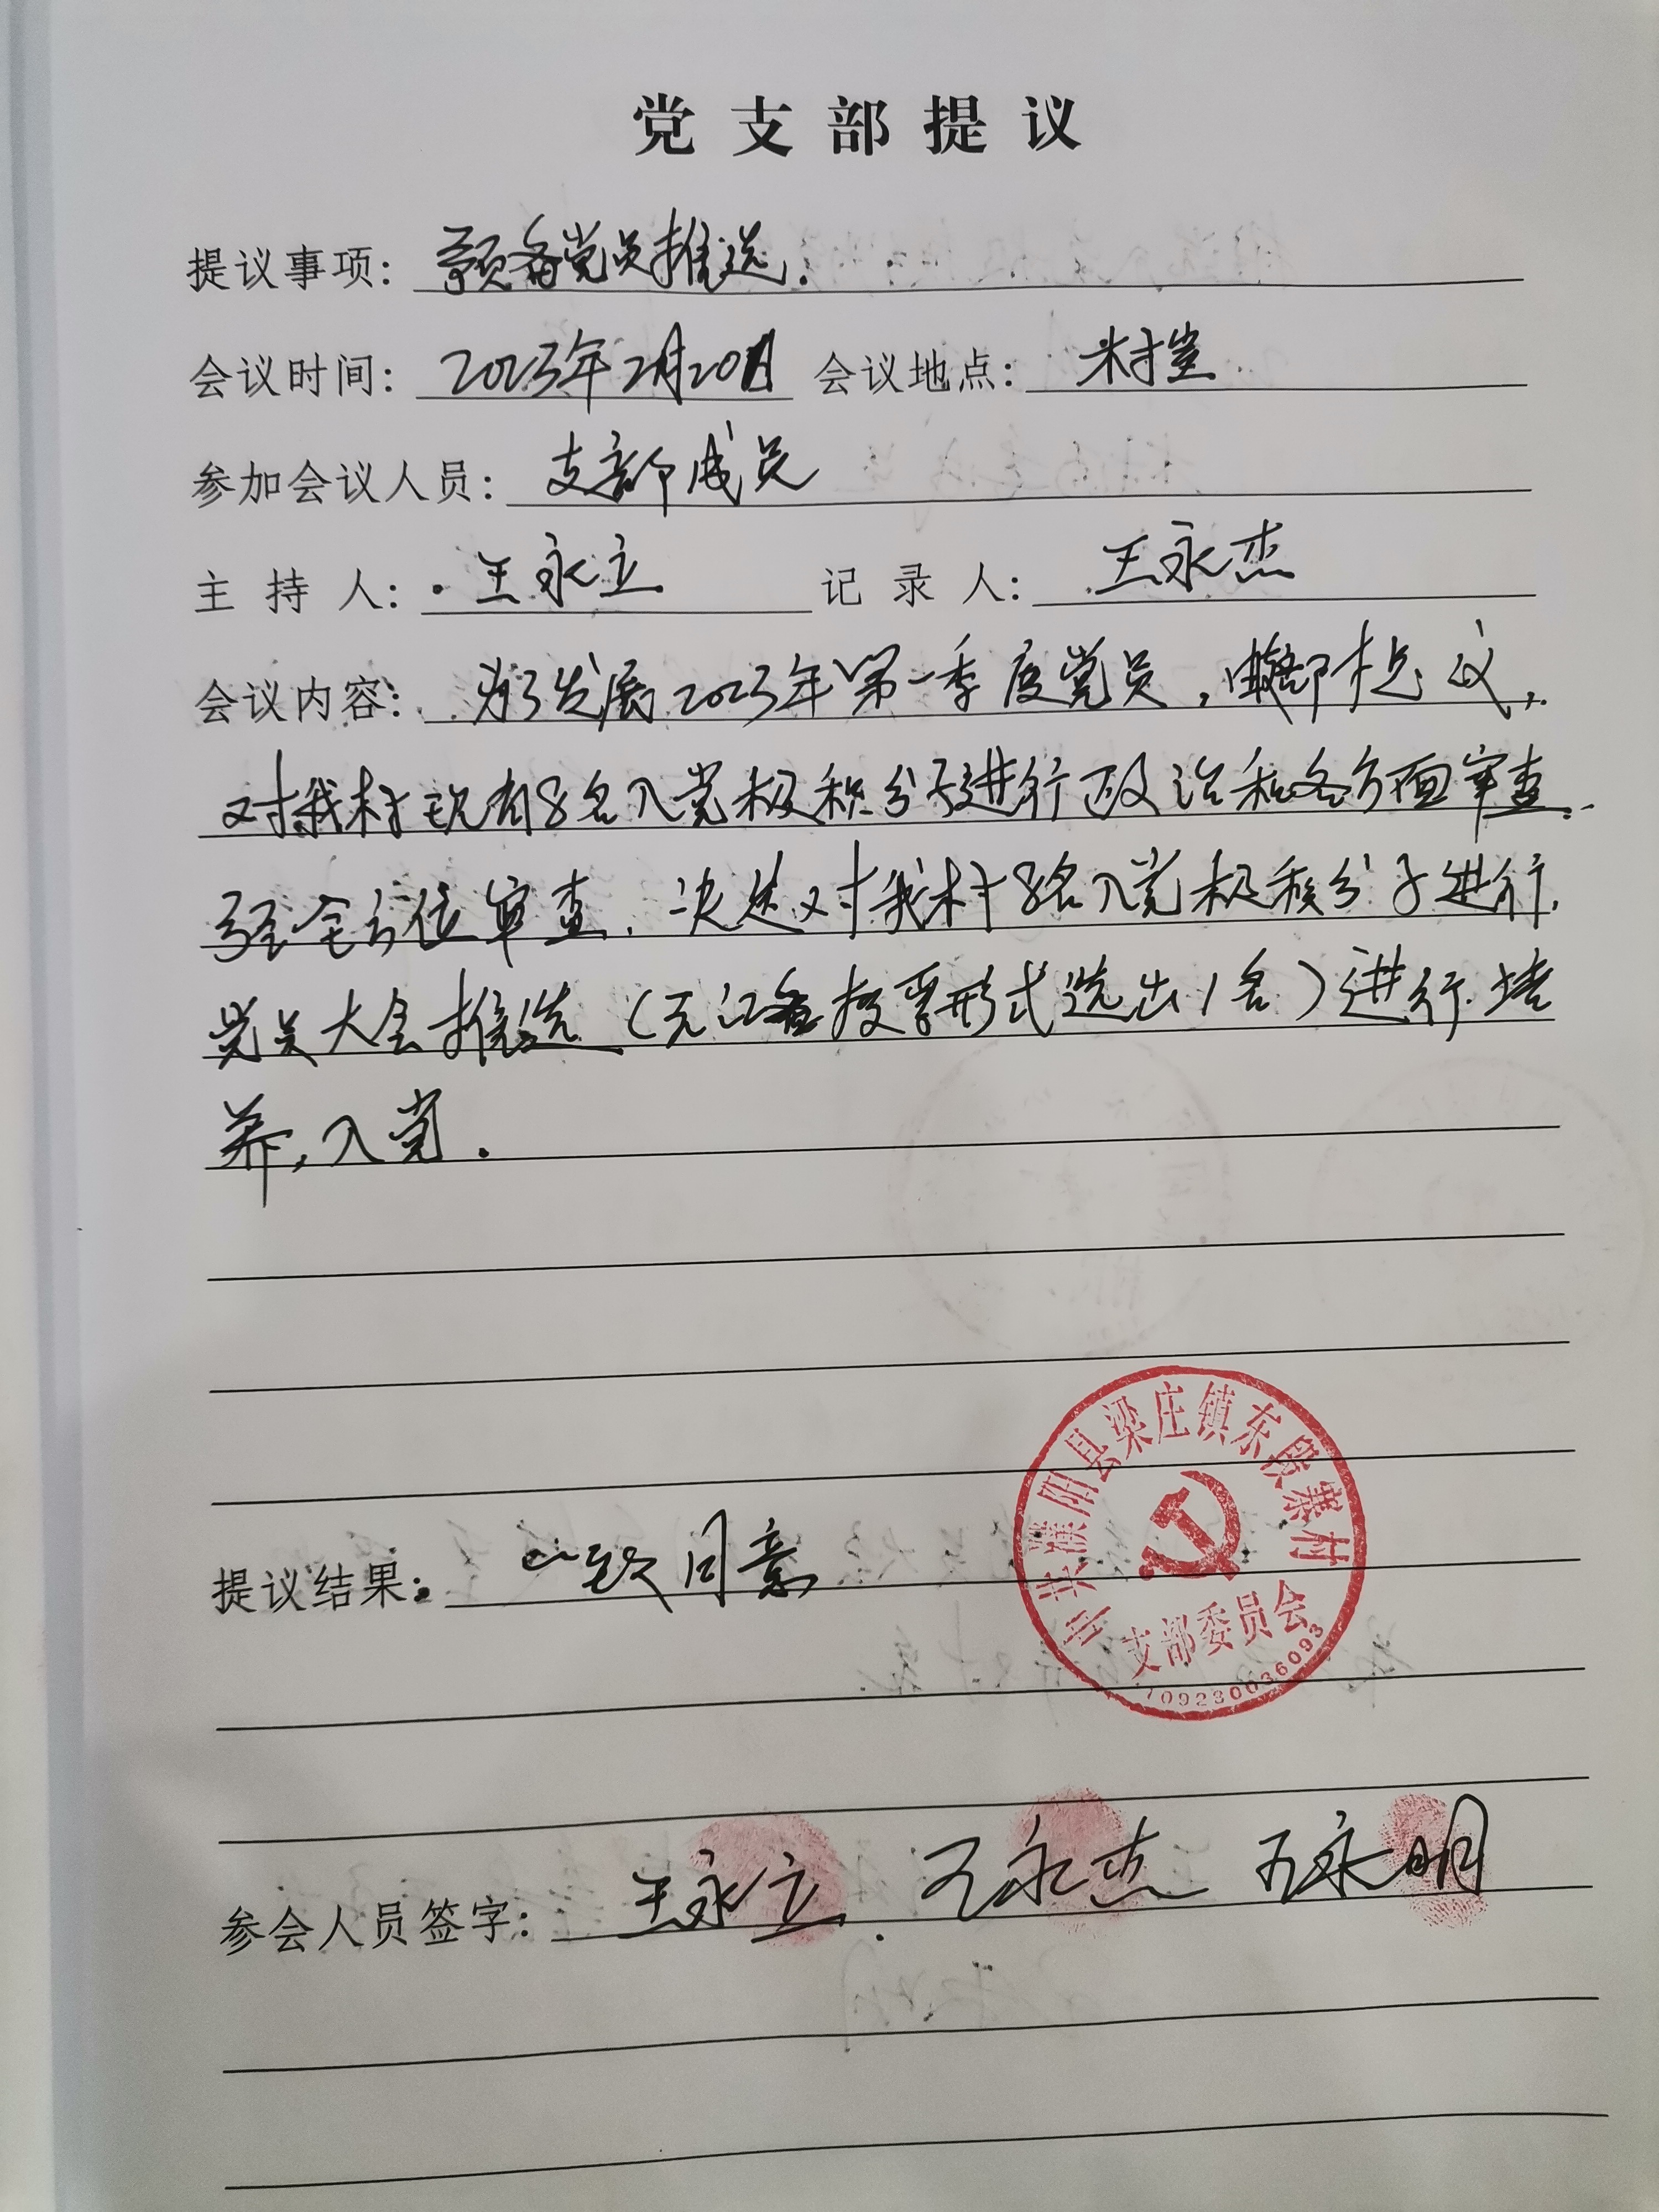 党支部提议
提议事项：预备党员推选．
会议时间：2023年2月20日 会议地点：村室
参加会议人员：支部成员
主持人：王永立 记录人：王永杰
会议内容：为了发展2023年第一季度党员，由支部提议，
对我村现有8名入党极积分子进行政治和各方面审查．
经全方位审查．决定对我村8名入党极积分子进行
党员大会推选（无记名投票形式选出1名）进行培
养，入党．
提议结果：一致同意
中共濮阳县梁庄镇东段寨村
支部委员会
参会人员签字：王永立．王永杰 王永明